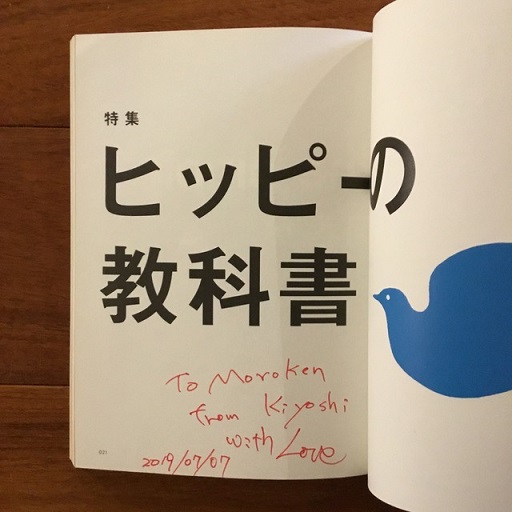 特集
ヒッピーの
教科書
To Moroken
from Kiyoshi
with Love
2019/07/07
021